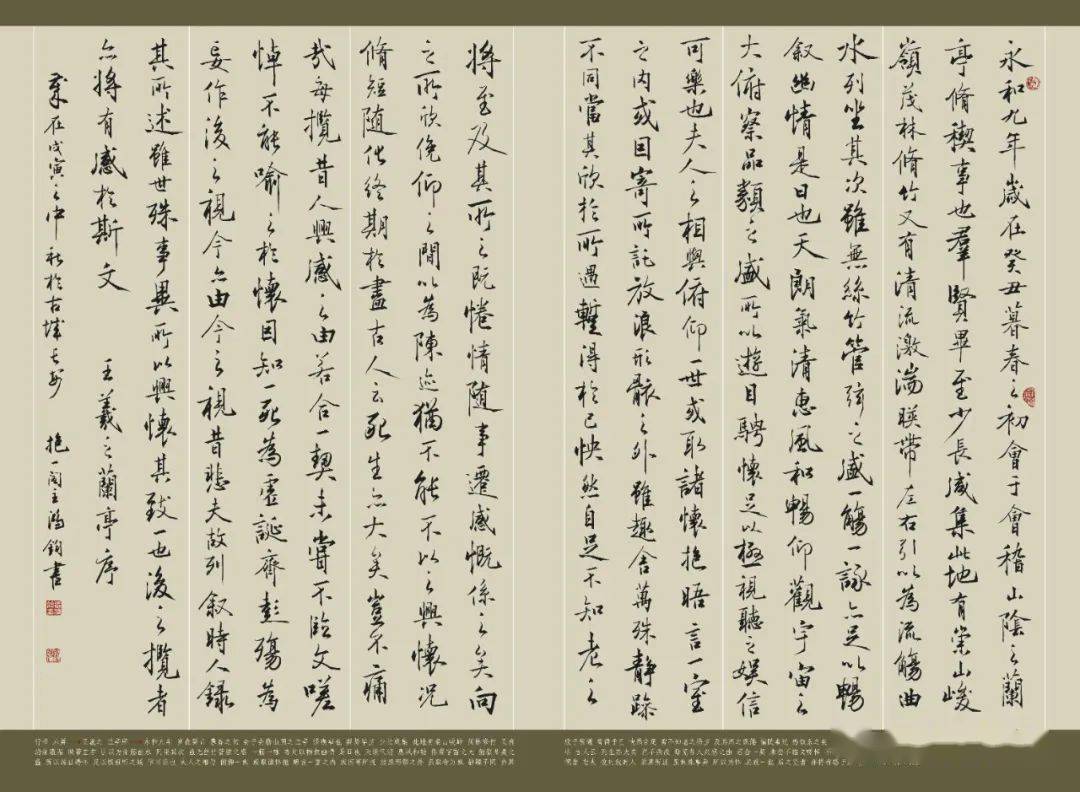 永和九年歲在癸丑暮春之初會于會稽山陰之蘭
亭脩稧事也羣賢畢至少長咸集此地有崇山峻
嶺茂林脩竹又有清流激湍暎帶左右引以為流觴曲
水列坐其次雖無絲竹管弦之盛一觴一詠亦足以暢
叙幽情是日也天朗氣清惠風和暢仰觀宇宙之
大俯察品類之盛所以遊目騁懷足以極視聽之娛信
可樂也夫人之相與俯仰一世或取諸懷抱晤言一室
之內或因寄所託放浪形骸之外雖趣舍萬殊靜躁
不同當其欣於所遇蹔得於己怏然自足不知老之
將至及其所之既惓情隨事遷感慨係之矣向
之所欣俛仰之間以為陳迹猶不能不以之興懷況
脩短隨化終期於盡古人云死生亦大矣豈不痛
哉每攬昔人興感之由若合一契未嘗不臨文嗟
悼不能喻之於懷固知一死為虛誕齊彭殤為
妄作後之視今亦由今之視昔悲夫故列叙時人錄
其所述雖世殊事異所以興懷其致一也後之攬者
亦將有感於斯文 王羲之蘭亭序
歲在戊寅之中秋於古城長安 抱一閣主鴻鈞書